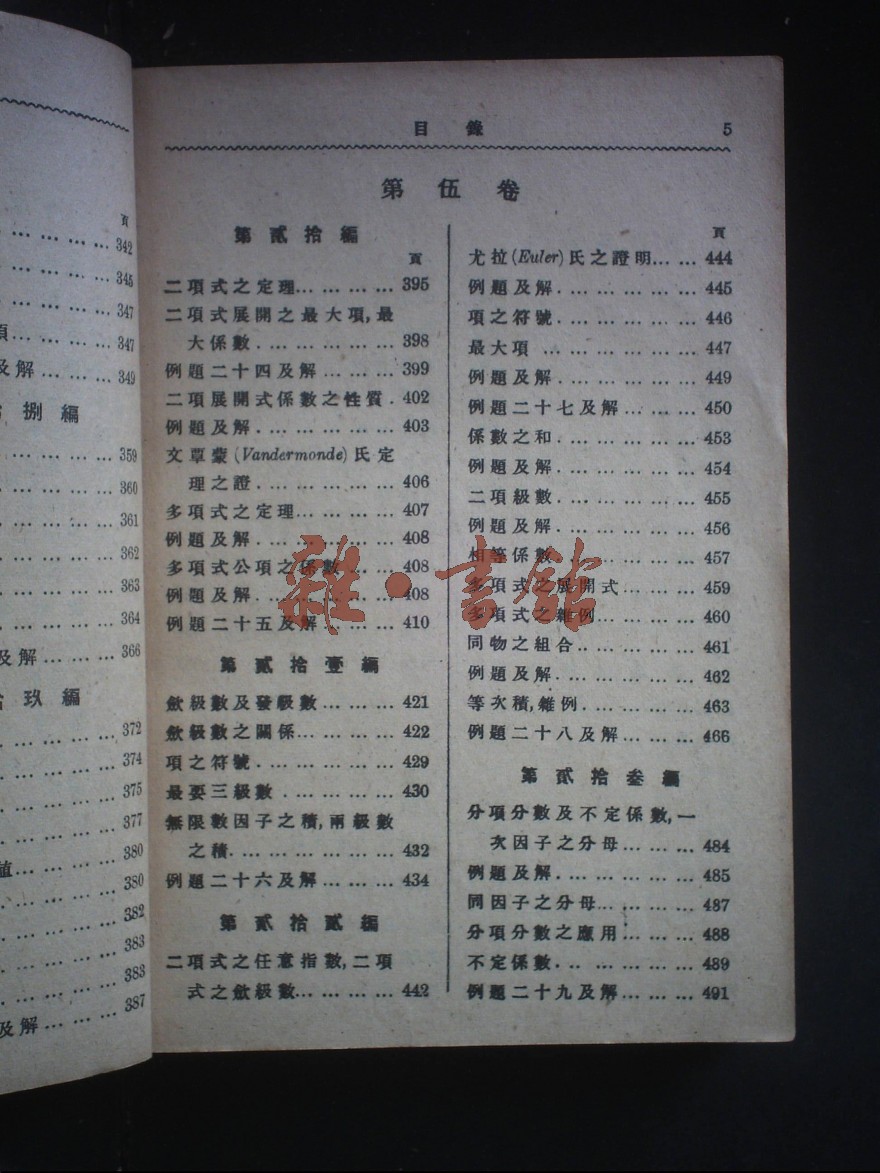 頁
342
345
347
項… … … … 347
及解… … … … 349
捌編
359
360
361
362
363
364
及解… … … … 366
玖編
372
374
375
377
值… … … … 380
380
382
383
383
387
及解… … … …
目錄 5
第伍卷
第貳拾編
頁
二項式之定理… … … … … 395
二項式展開之最大項,最
大係數… … … … … … 398
例題二十四及解… … … … 399
二項展開式係數之性質. 402
例題及解… … … … … … 403
文覃蒙(Vandermonde)氏定
理之證… … … … … … 406
多項式之定理… … … … … 407
例題及解… … … … … … 408
多項式公項之係數… … … 408
例題及解… … … … … … 408
例題二十五及解… … … … 410
第貳拾壹編
斂級數及發級數… … … … 421
斂級數之關係… … … … … 422
項之符號… … … … … … 429
最要三級數… … … … … 430
無限數因子之積,兩級數
之積… … … … … … … 432
例題二十六及解… … … … 434
第貳拾貳編
二項式之任意指數,二項
式之斂級數… … … … … 442
頁
尤拉(Euler)氏之證明… … 444
例題及解… … … … … … 445
項之符號… … … … … … 446
最大項… … … … … … 447
例題及解… … … … … … 449
例題二十七及解… … … … 450
係數之和… … … … … … 453
例題及解… … … … … … 454
二項級數… … … … … … 455
例題及解… … … … … … 456
相等係數… … … … … … 457
多項式之展開式… … … … 459
多項式之雜例… … … … … 460
同物之組合… … … … … 461
例題及解… … … … … … 462
等次積,雜例… … … … … 463
例題二十八及解… … … … 466
第貳拾叁編
分項分數及不定係數,一
次因子之分母… … … … 484
例題及解… … … … … … 485
同因子之分母… … … … … 487
分項分數之應用… … … … 488
不定係數… … … … … … 489
例題二十九及解… … … … 491
雜·書館